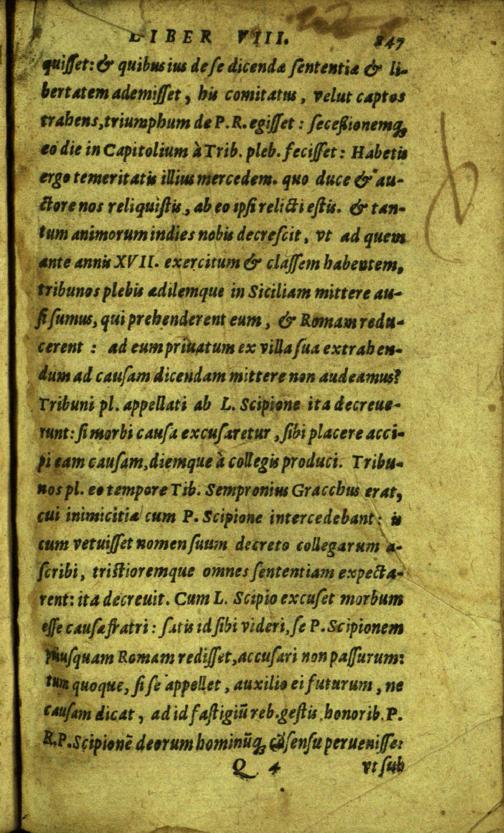 LIBER VIII. 247
quisset: & quibus ius de se dicendæ sententiæ & li-
bertatem ademisset, his comitatus, velut captos
trahens, triumphum de P. R. egisset: secessionemq;
eo die in Capitolium à Trib. pleb. fecisset: Habetis
ergo temeritatis illius mercedem. quo duce & au-
ctore nos reliquistis, ab eo ipsi relicti estis. & tan-
tum animorum indies nobis decrescit, vt ad quem
ante annis XVII. exercitum & classem habentem,
tribunos plebis ædilemque in Siciliam mittere au-
si sumus, qui prehenderent eum, & Romam redu-
cerent : ad eum priuatum ex villa sua extrahen-
dum ad causam dicendam mittere non audeamus?
Tribuni pl. appellati ab L. Scipione ita decreue-
runt: si morbi causa excusaretur, sibi placere acci-
pi eam causam, diemque à collegis produci. Tribu-
nos pl. eo tempore Tib. Sempronius Gracchus erat,
cui inimicitiæ cum P. Scipione intercedebant: is
cum vetuisset nomen suum decreto collegarum a-
scribi, tristioremque omnes sententiam expecta-
rent: ita decreuit. Cum L. Scipio excuset morbum
esse causæ fratri: satis id sibi videri, se P. Scipionem
priusquam Romam redisset, accusari non passurum:
tum quoque, si se appellet, auxilio ei futurum, ne
causam dicat, ad id fastigiũ reb. gestis, honorib. P.
R. P. Scipionẽ deorum hominũq; cõsensu peruenisse:
Q 4 vt sub